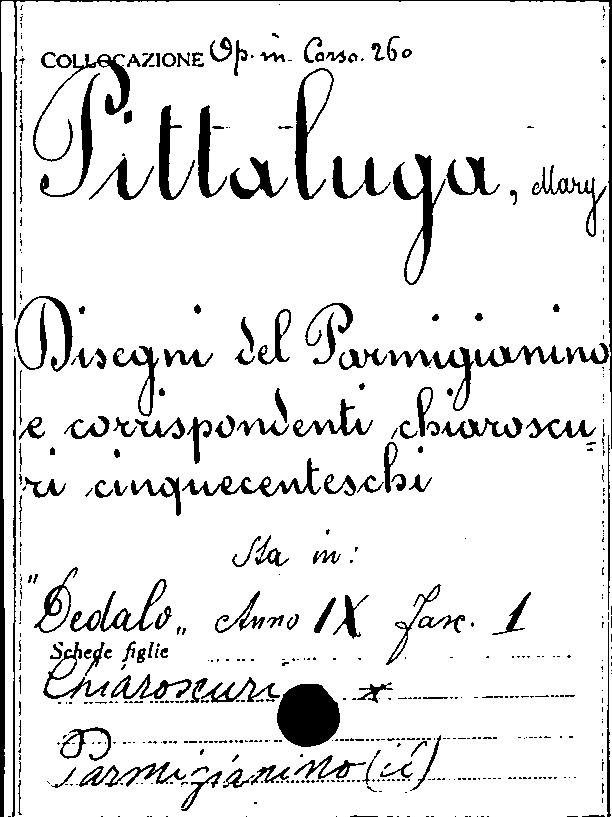 COLLOCAZIONE Op. in Corso. 260
Pittaluga, Mary
Disegni del Parmigianino
e corrispondenti chiaroscu=
ri cinquecenteschi
Sta in:
"Dedalo" Anno IX fasc. 1
Schede figlie
Chiaroscuri x
Parmigianino (il)